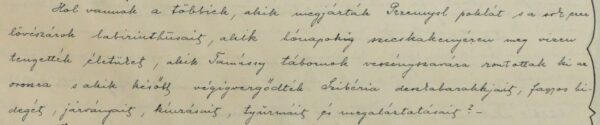 Hol vannak a többiek, akik megjárták Przemysl poklát s a sok ezer
lövészárok labirinthusait, akik hónapokig szecskakenyéren meg vizen
tengették életüket, akik Tamássy tábornok vezényszavára rontottak ki az
oroszra s akik később végigvergődték Szibéria deszkabarakkjait, fagyos hi-
degét, járványait, kínzásait, tyúrmáit és megaláztatásait? –